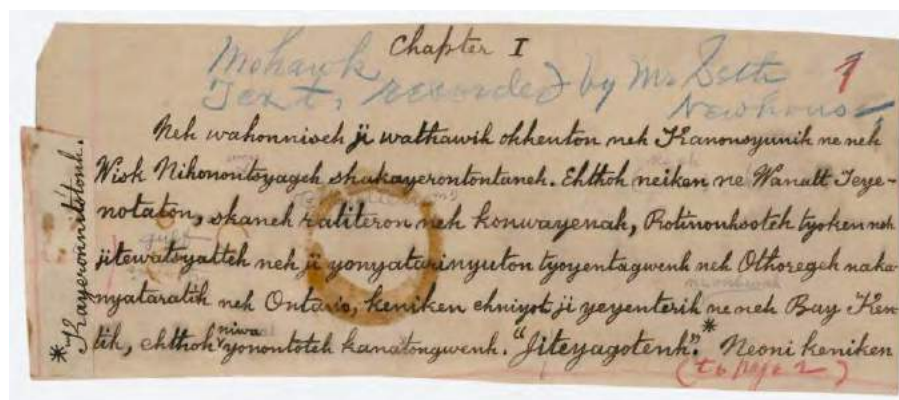 Chapter I
Mohawk
Text, recorded by Mr. Seth
Newhouse
1
Neh wahonniseh ji wathawih okhenton neh Kanonsyunih ne neh
Wisk Nihonontsyageh shakayerontontaneh. Ehthoh neiken ne Wanatt Teye-
notaton, skaneh ratiteron neh konwayenah, Rotinonhsoteh tyoken neh
jitewatsyatteh neh ji yonyatarinyuton tyoyentagwenh neh Othoregeh naka-
nyataratih neh Ontario, keniken ehniyot ji yeyenterih ne neh Bay Ken-
tih, ehthoh niwa yonontoteh kanatongwenh. "Jiteyagotenh".* Neoni keniken
(to page 2)
*Kayeronnitotonh.